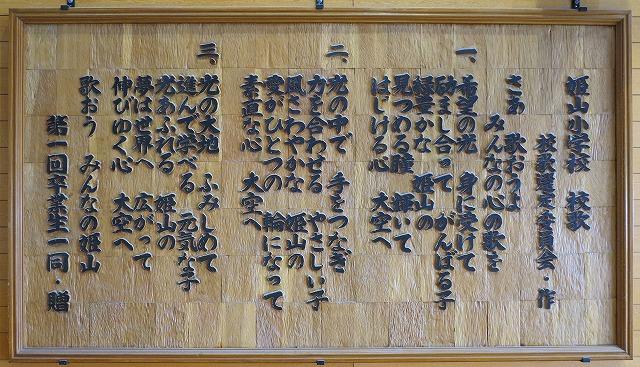 姫山小学校 校歌
校歌選定委員会・作
さあ 歌おうよ
みんなの心の歌を
一、希望の光 身に受けて
励まし合って がんばる子
緑豊かな 姫山の
見つめる瞳 輝いて
はじける心 大空へ
二、光の中で 手をつなぎ
力を合わせる やさしい子
風さわやかな 姫山の
愛がひとつの 輪になって
素直な心 大空へ
三、光の大地 ふみしめて
進んで学べる 元気な子
光あふれる 姫山の
夢は世界へ 広がって
伸びゆく心 大空へ
歌おう みんなの姫山
第一回卒業生一同・贈